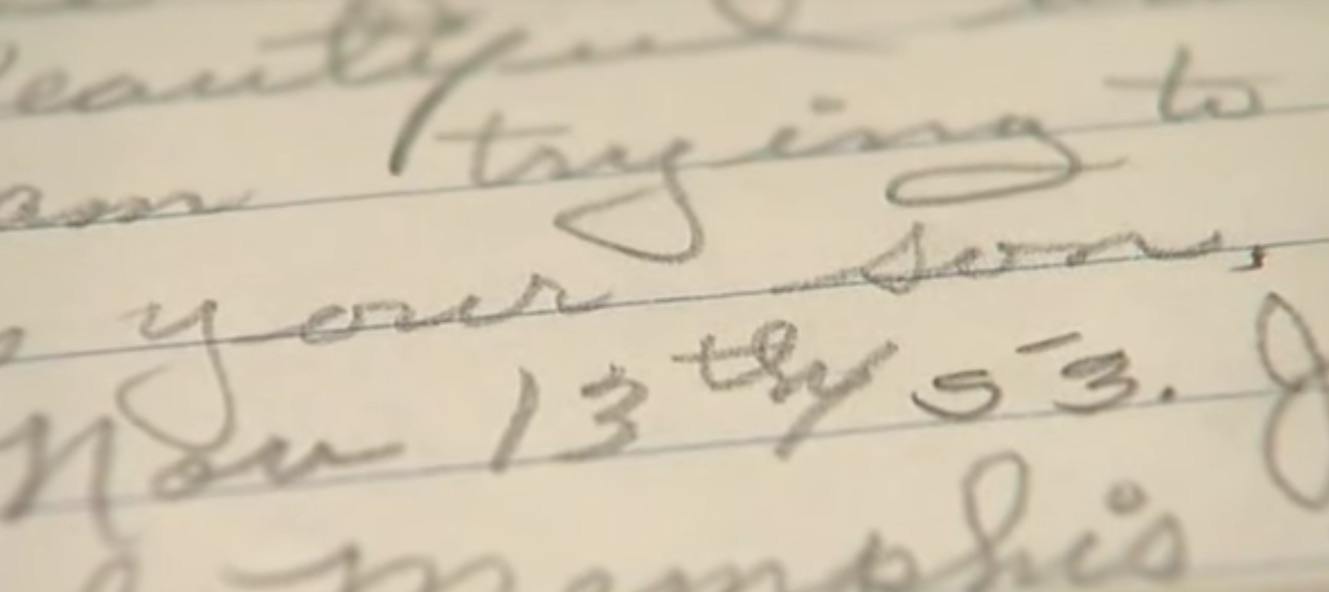 beautiful
am trying to
your son,
Nov 13th/53.
Memphis